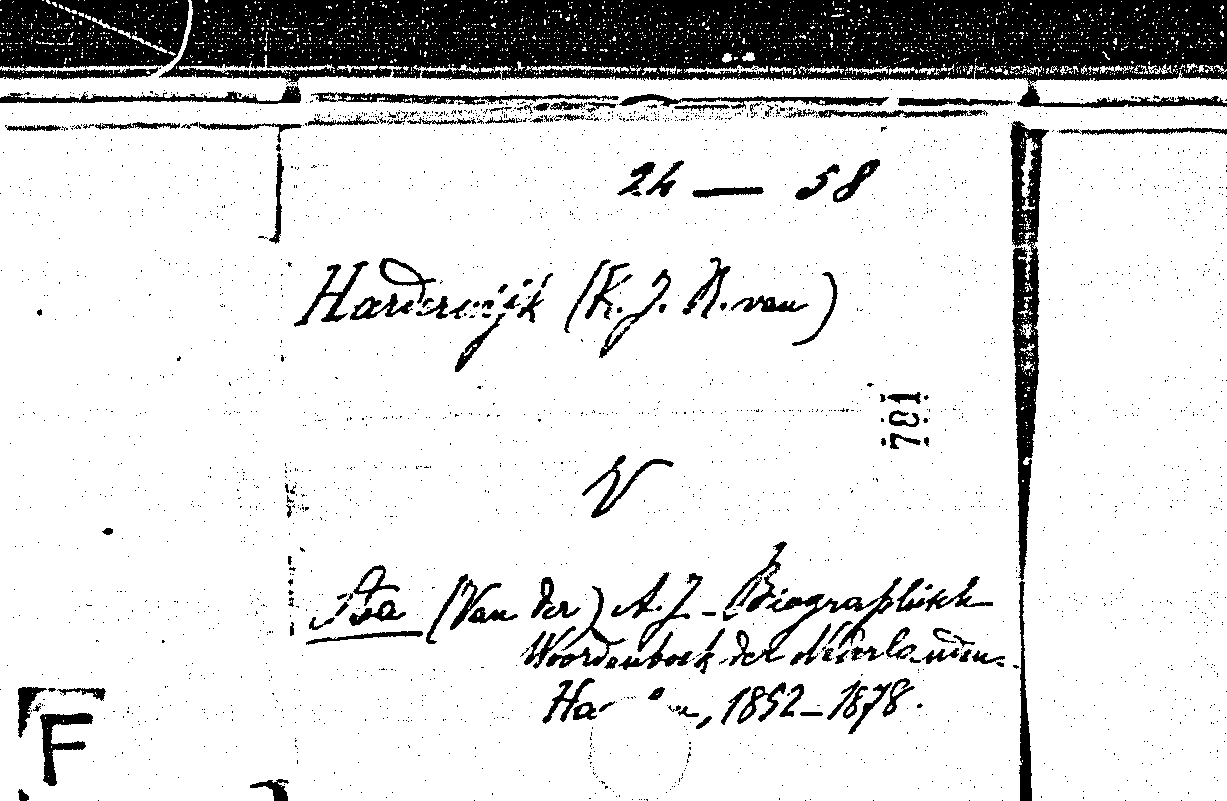 24 — 58
Harderwijk (K. J. R. van)
781
V
Aa (Van der) A. J. - Biographisch
Woordenboek der Nederlanden.
1852-1878.
F